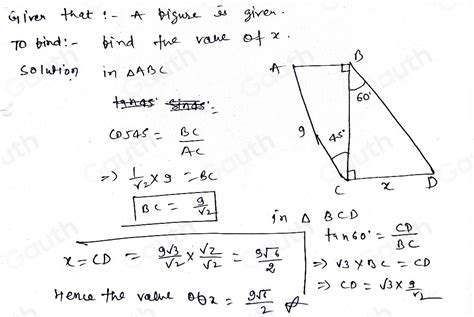 Given that :- A figure is given.
To find:- find the value of x.
Solution in △ABC
tan45 sin45° =
cos45 = BC/AC
=> 1/√2 × 9 = BC
BC = 9/√2
A
B
60°
9
45°
C
x
D
in △ BCD
tan60° = CD/BC
=> √3 × BC = CD
=> CD = √3 × 9/√2
x = CD = 9√3/√2 × √2/√2 = 9√6/2
Hence the value of x = 9√6/2
Gauth